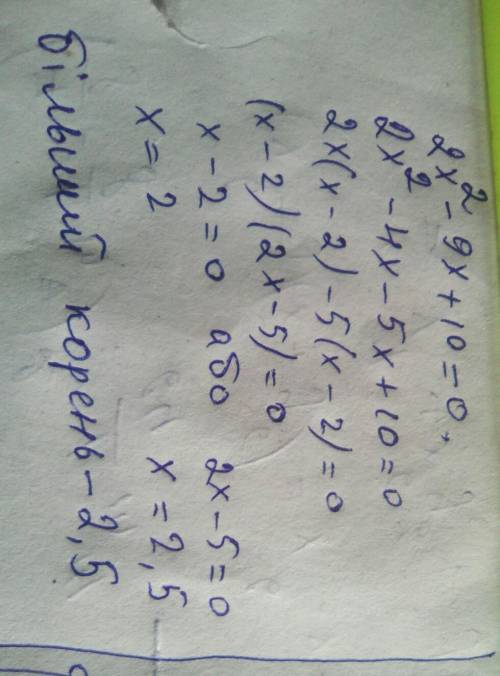 2x² - 9x + 10 = 0.
2x² - 4x - 5x + 10 = 0
2x(x - 2) - 5(x - 2) = 0
(x - 2)(2x - 5) = 0
x - 2 = 0 або 2x - 5 = 0
x = 2 x = 2,5
більший корень - 2,5